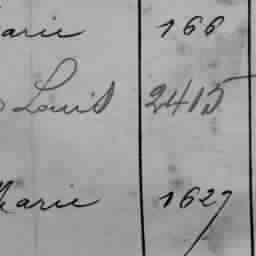 arie 166
Louis 2415
Marie 1627